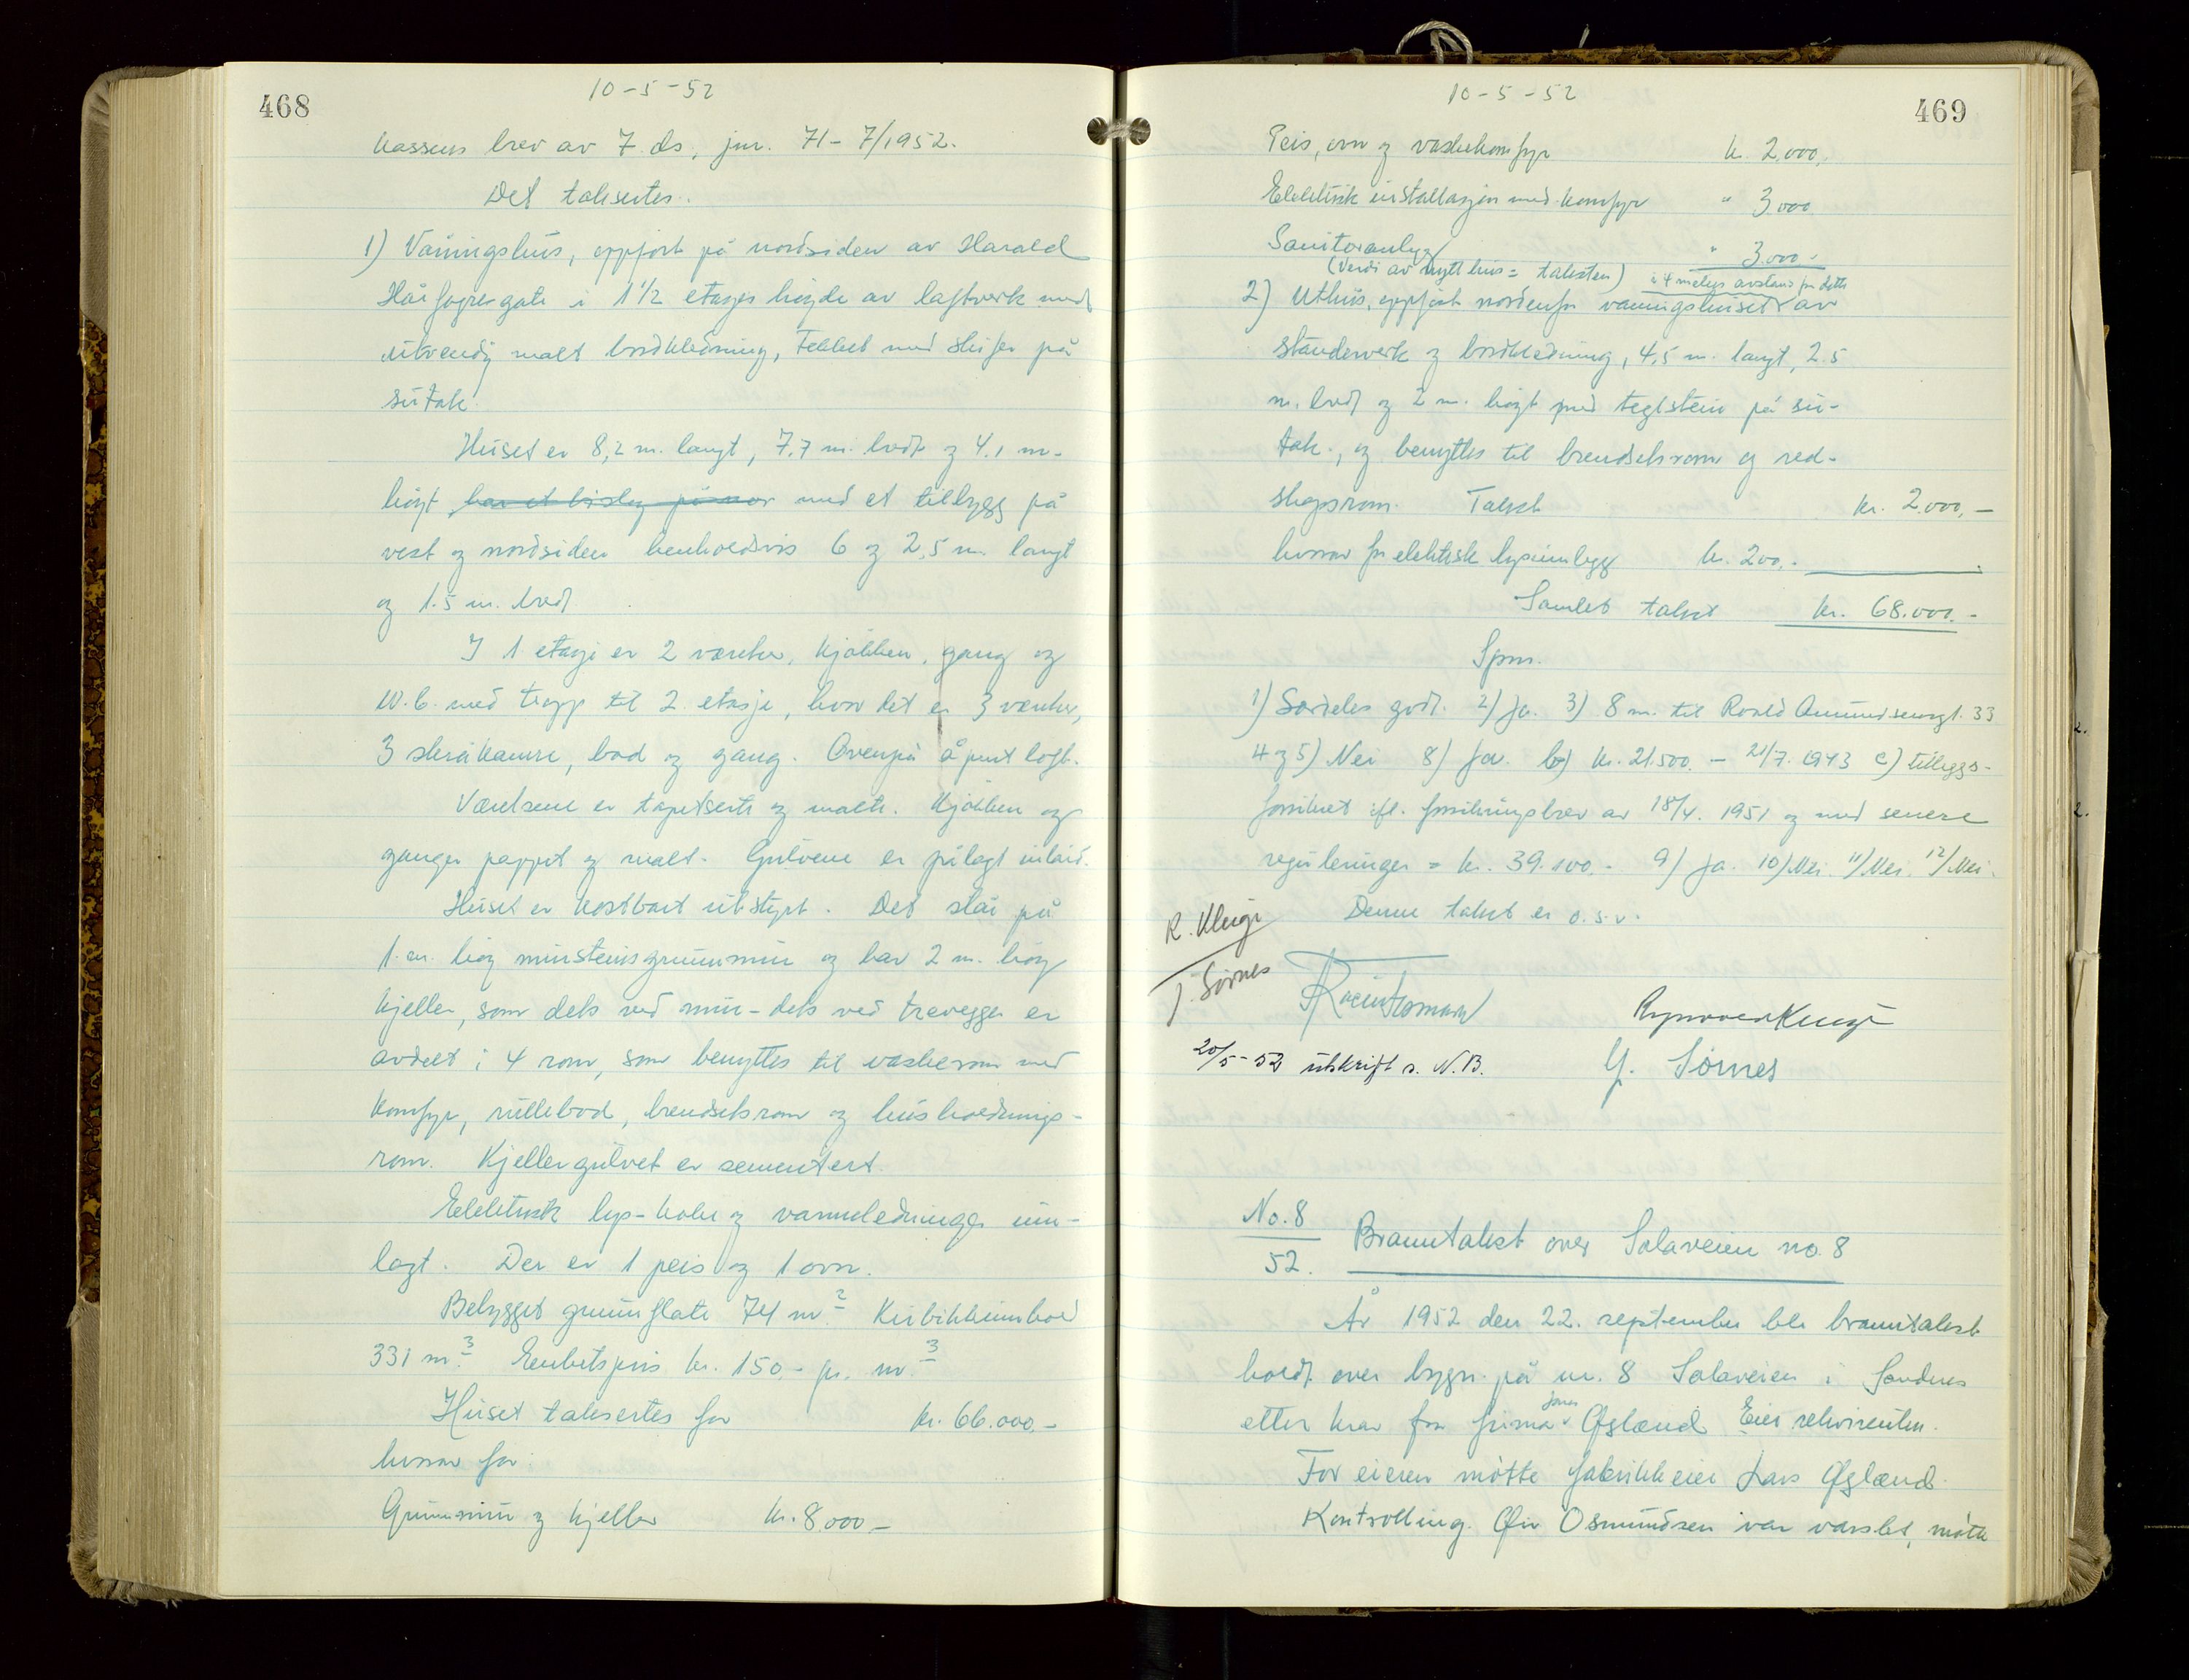 468
10-5-52
kassens brev av 7. ds, jnr. 71-7/1952.
Det taksertes.
1) Våningshus, oppført på nordsiden av Harald
Hårfagresgate i 1 1/2 etasjes høyde av laftverk med
utvendig malt bordkledning, tekket med skifer på
sutak.
Huset er 8,2 m. langt, 7,7 m. bredt og 4,1 m.
høyt med et tilbygg på
vest og nordsiden henholdsvis 6 og 2,5 m. langt
og 1.5 m. bredt
I 1 etasje er 2 værelser, kjøkken, gang og
W.C. med trapp til 2 etasje, hvor det er 3 værelser,
3 skråkamre, bad og gang. Ovenpå åpent loft.
Værelsene er tapetserte og malte. Kjøkken og
ganger pappet og malt. Gulvene er pålagt inlaid.
Huset er kostbart utstyrt. Det står på
1. m. høy murstensgrunnmur og har 2 m. høy
kjeller, som dels ved mur- dels ved trevegger er
avdelt i 4 rom, som benyttes til vaskerom med
komfyr, rullebod, brendselsrom og husholdnings-
rom. Kjellergulvet er sementert.
Elektrisk lys- koke og varmeledninger inn-
lagt. Der er 1 peis og 1 ovn.
Bebygget grunnflate 74 m². Kubikkinnhold
331 m³. Enhetspris kr. 150,- pr. m³
Huset taksertes for kr. 66.000.-
hvorav for:
Grunnmur og kjeller kr. 8.000-
469
10-5-52
Peis, ovn og vaskekomfyr kr. 2.000,
Elektrisk installasjon med komfyr " 3.000
Sanitæranlegg " 3.000.-
(Verdi av nytt hus = taksten) i 4 meters avstand fra dette
2) Uthus, oppført nordenfor våningshuset av
stenderverk og bordkledning, 4,5 m. langt, 2.5
m. bredt og 2 m. høyt med teglstein på su-
tak., og benyttes til brendselsrom og red-
skapsrom. Takst kr. 2.000,-
hvorav for elektrisk lysinnlegg kr. 200,-
Samlet takst kr. 68.000.-
Spm.
1) Særdeles godt. 2) Ja. 3) 8 m. til Roald Amundsensgt. 33
4 og 5) Nei 8) Ja. b) kr. 21.500.- 21/7. 1943 c) tilleggs-
forsikret ifl. forsikringsbrev av 18/4. 1951 og med senere
reguleringer = kr. 39.100.- 9) Ja. 10) Nei. 11) Nei. 12) Nei.
Denne takst er o.s.v.
R. Kluge
T. Sørnes
20/5-52 utskrift s. N.B.
Sørnes
No. 8
52.
Branntakst over Solaveien no. 8
År 1952 den 22. september ble branntakst
holdt over bygn. på nr. 8 Solaveien i Sandnes
etter krav fra firma Jonas Øglænd. Eier rekvirenten.
For eieren møtte fabrikkeier Lars Øglænd.
Kontrolling. Øiv Osmundsen var varslet, møtte